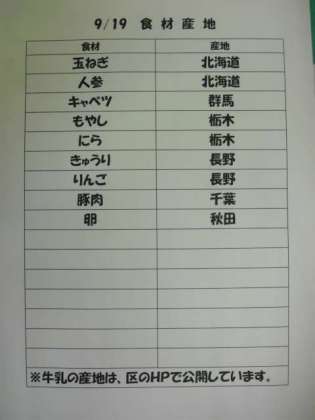 9/19 食材産地
食材 産地
玉ねぎ 北海道
人参 北海道
キャベツ 群馬
もやし 栃木
にら 栃木
きゅうり 長野
りんご 長野
豚肉 千葉
卵 秋田
※牛乳の産地は、区のHPで公開しています。